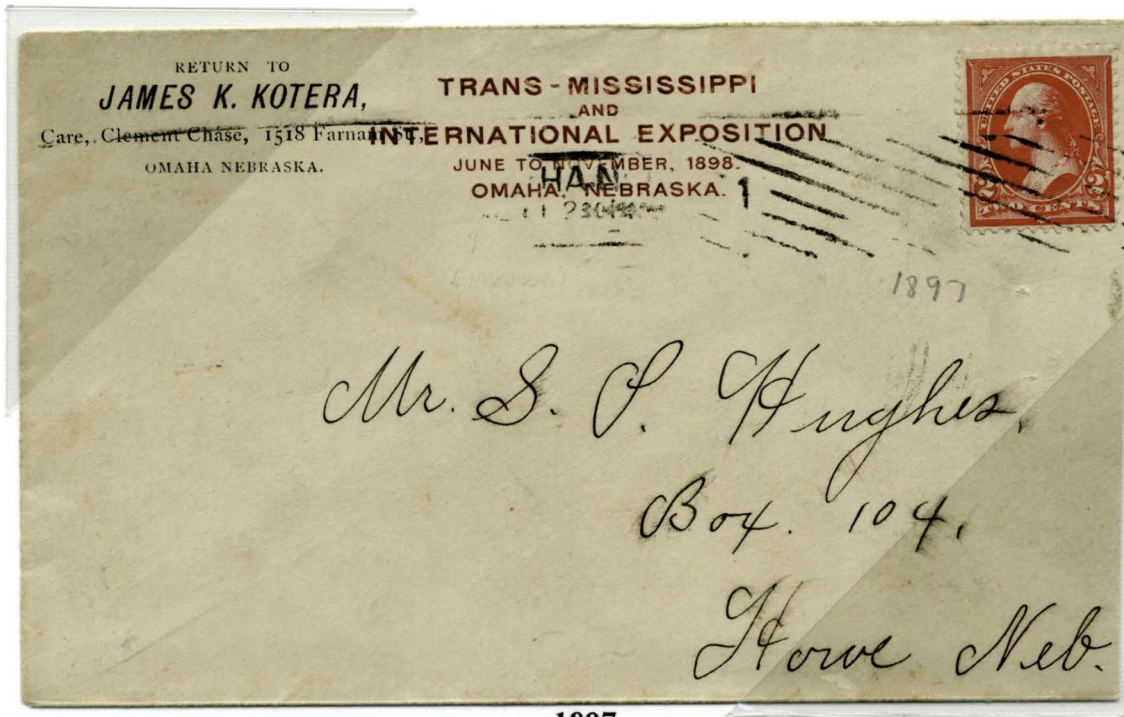 RETURN TO
JAMES K. KOTERA,
Care, Clement Chase, 1518 Farnam St.
OMAHA NEBRASKA.
TRANS-MISSISSIPPI
AND
INTERNATIONAL EXPOSITION
JUNE TO NOVEMBER, 1898.
OMAHA, NEBRASKA.
HA, N
1
UNITED STATES POSTAGE
2 2
TWO CENTS
1897
Mr. S. P. Hughes,
Box. 104,
Howe Neb.
1897